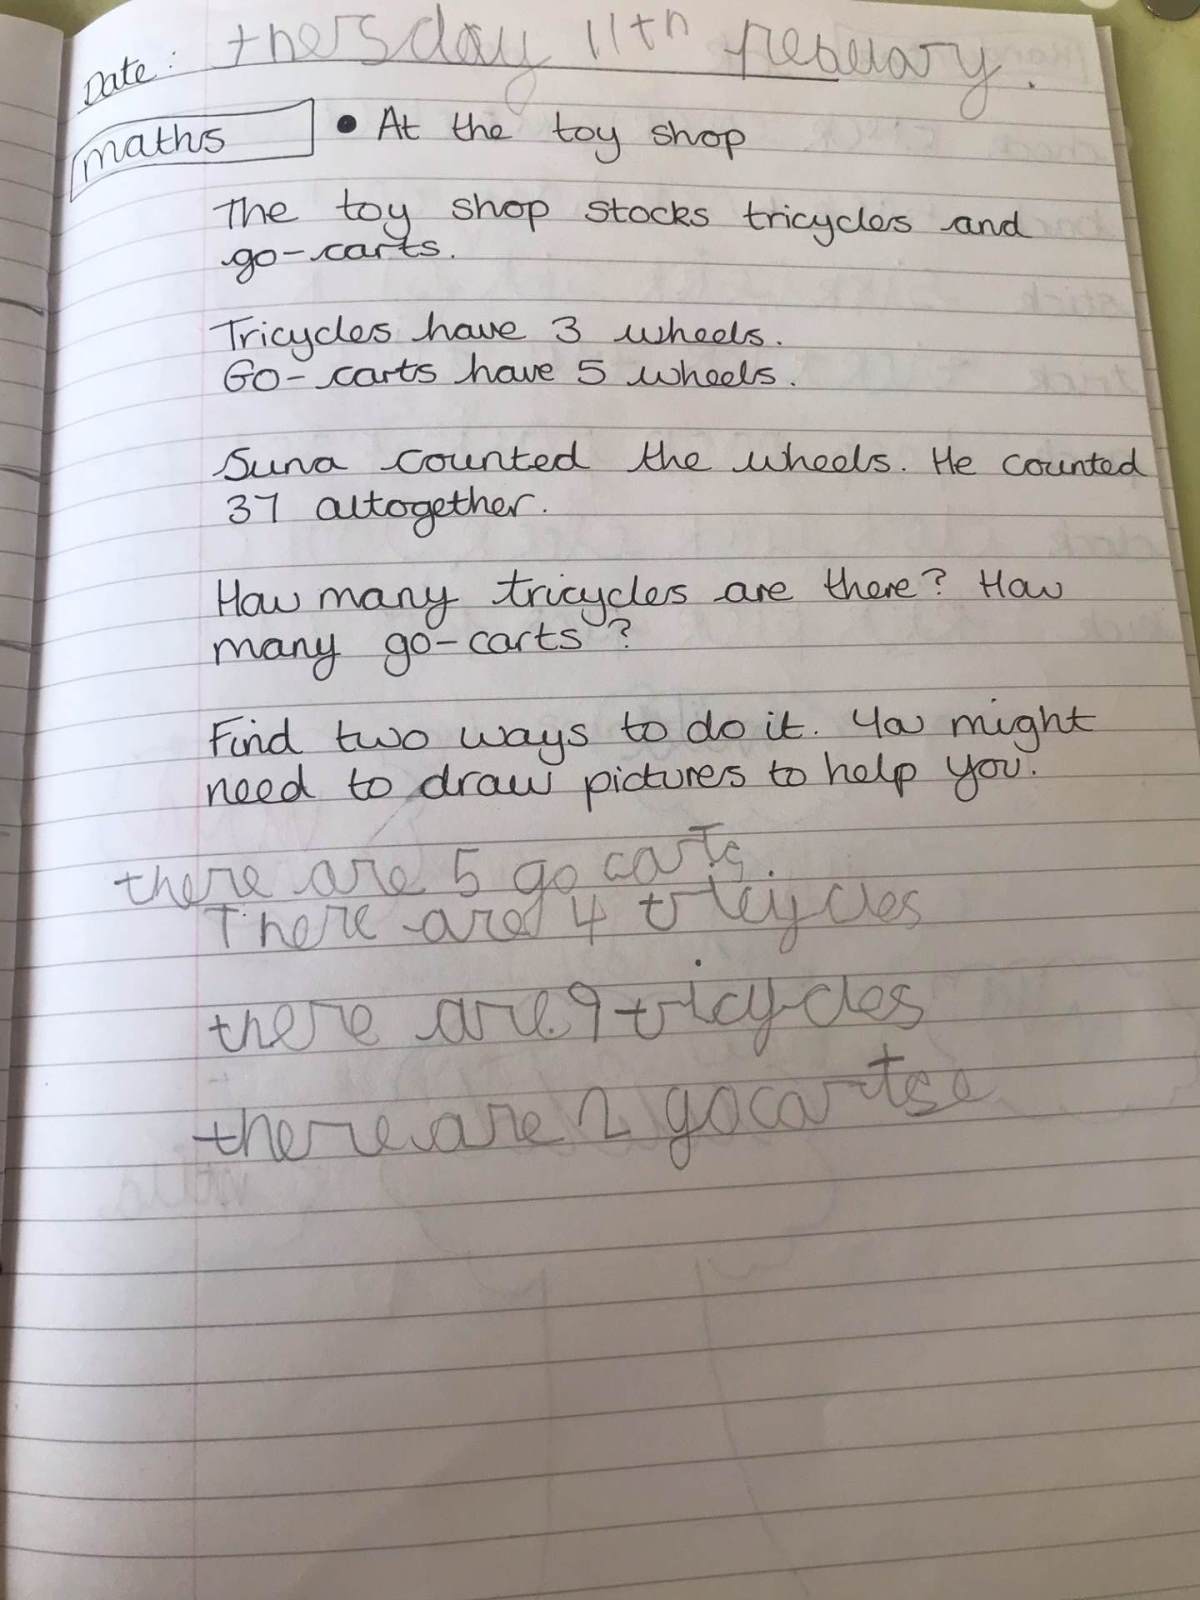 Date: thersday 11th febuary.
maths • At the toy shop
The toy shop stocks tricycles and
go-carts.
Tricycles have 3 wheels.
Go-carts have 5 wheels.
Suna counted the wheels. He counted
37 altogether.
How many tricycles are there? How
many go-carts?
Find two ways to do it. You might
need to draw pictures to help you.
there are 5 go carts.
There are 4 tricycles
there are 9 tricycles
there are 2 gocarts